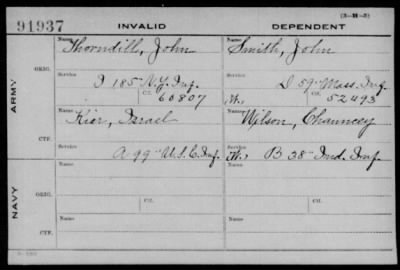 (3-M-3)
91937 INVALID DEPENDENT
Name Thorndill, John Name Smith, John
ORIG. Service I 185" N.Y. Inf. Service D 59" Mass. Inf.
CT. 60807 W. CT. 52493
ARMY
Name Kier, Israel Name Wilson, Chauncey
CTF. Service A 99" U.S.C. Inf. Service W. B 38" Ind. Inf.
Name Name
ORIG. Service Service
NAVY
Name Name
CTF. Service Service